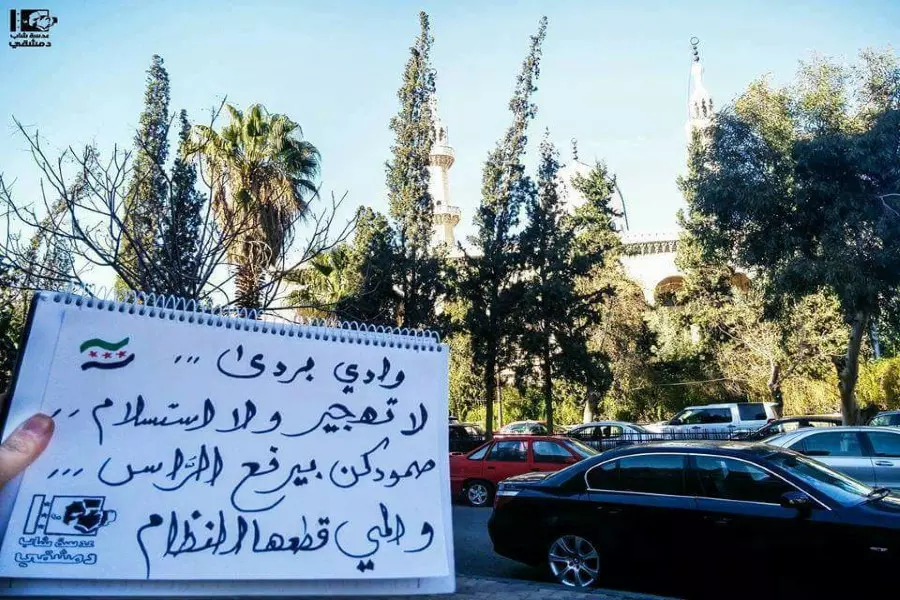 عدسة شاب
دمشقي
وادي بردى ...
لا تهجير ولا استسلام ..
صمودكن بيرفع الرّاس ...
والمي قطعها النظام
عدسة شاب
دمشقي